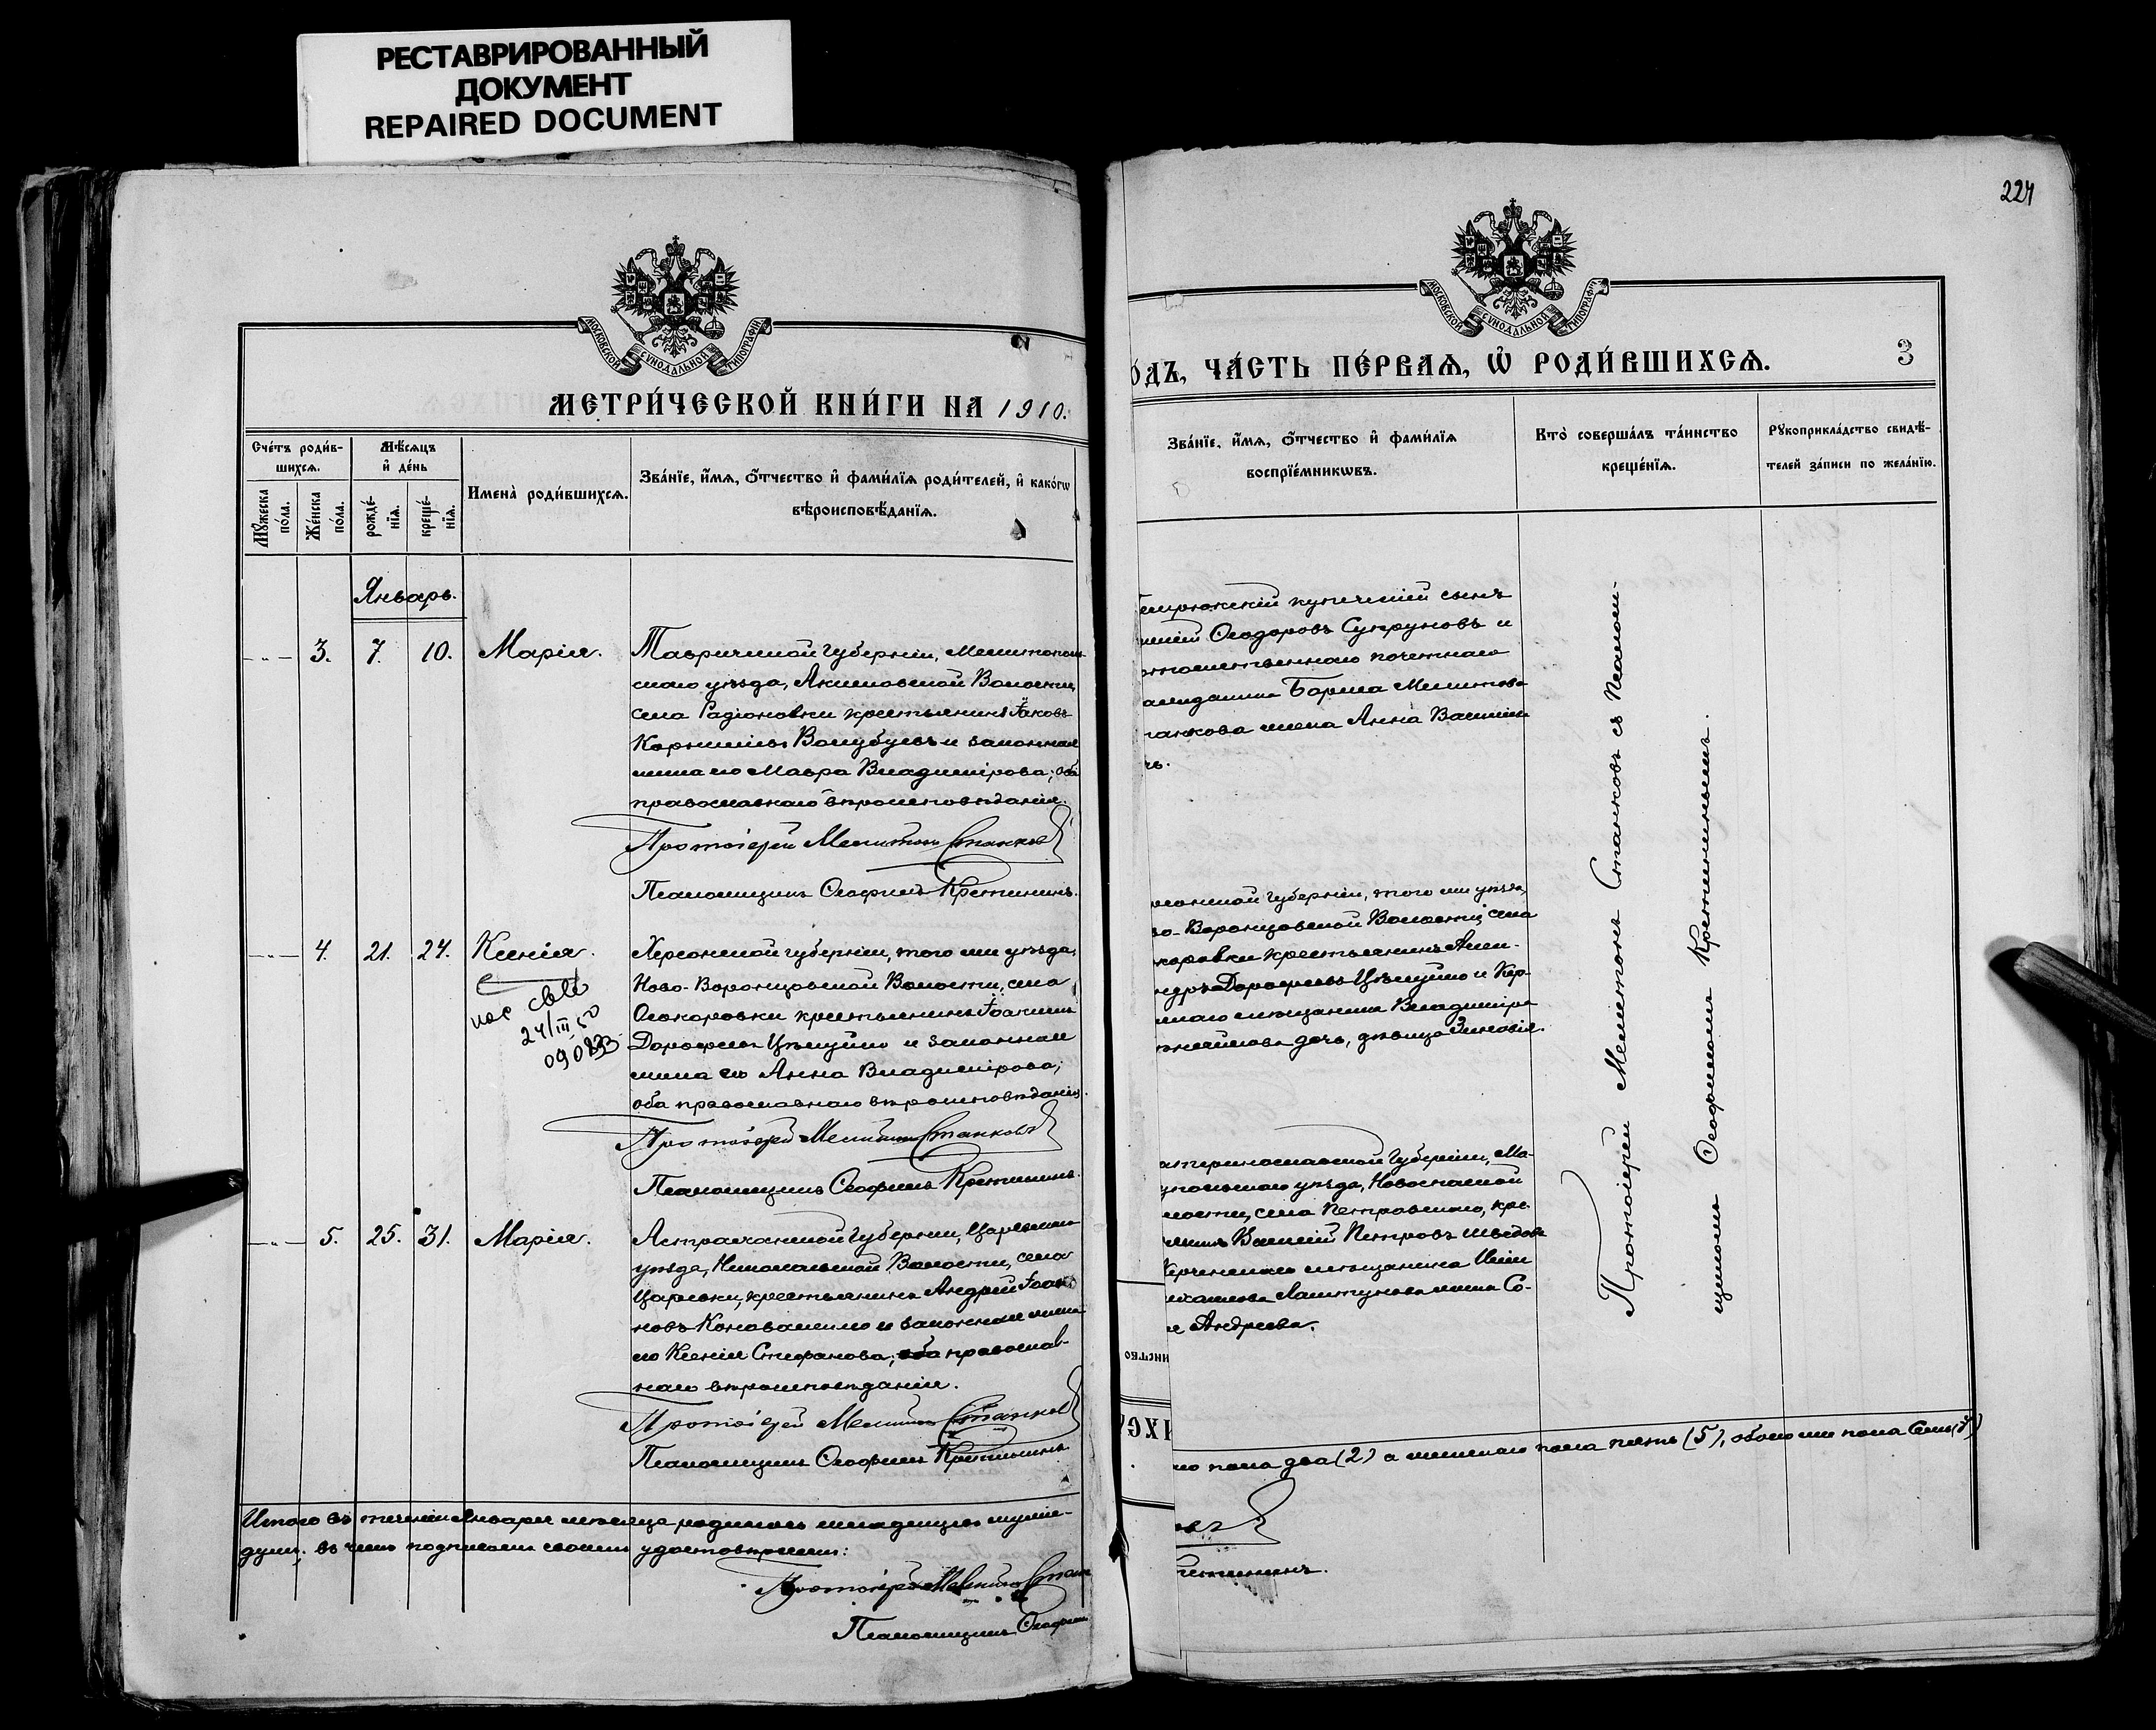 РЕСТАВРИРОВАННЫЙ
ДОКУМЕНТ
REPAIRED DOCUMENT
МОСКОВСКОЙ СѴНОДАЛЬНОЙ ТИПОГРАФІИ
МЕТРИ́ЧЕСКОЙ КНИ́ГИ НА 1910.
Сче́тъ роди́в-
шихсѧ.
Мꙋ́жеска по́ла.
Же́нска по́ла.
Мѣ́сѧцъ
и҆ де́нь
рожде́-
нїѧ.
креще́-
нїѧ.
Имена̀ роди́вшихсѧ.
Зва́нїе, и҆́мѧ, ѻ҆́тчество и҆ фами́лїѧ роди́телей, и҆ како́гѡ
вѣроисповѣ́данїѧ.
Январь.
-"- 3. 7. 10. Марія.
Таврической губерніи, Мелитополь-
скаго уѣзда, Акимовской Волости,
села Радіоновки крестьянинъ Іаковъ
Корниліевъ и законная
жена его Мавра Владимірова; оба
православнаго вѣроисповѣданія.
Протоіерей Мелитонъ Станковъ
Псаломщикъ Ѳеофилъ Кретининъ.
-"- 4. 21. 24. Ксенія.
24/III 50
Херсонской губерніи, того же уѣзда,
Ново-Воронцовской Волости, села
Осокоровки крестьянинъ Іоакимъ
Дорофеевъ и законная
жена его Анна Владимірова;
оба православнаго вѣроисповѣданія.
Протоіерей Мелитонъ Станковъ
Псаломщикъ Ѳеофилъ Кретининъ.
-"- 5. 25. 31. Марія.
Астраханской Губерніи, Царевскаго
уѣзда, Николаевской Волости, села
Царевки, крестьянинъ Андрей Іоан-
новъ и законная жена
его Ксенія Стефанова; оба православ-
наго вѣроисповѣданія.
Протоіерей Мелитонъ Станковъ
Псаломщикъ Ѳеофилъ Кретининъ.
Итого въ теченіи Января мѣсяца родилось младенцевъ муже-
душъ; въ чемъ подписями своими удостовѣряемъ:
Протоіерей Мелитонъ Стан
Псаломщикъ Ѳеофил
224
МОСКОВСКОЙ СѴНОДАЛЬНОЙ ТИПОГРАФІИ
О́ДЪ, ЧА́СТЬ ПЕ́РВАѦ, Ѽ РОДИ́ВШИХСѦ.
3
Зва́нїе, и҆́мѧ, ѻ҆́тчество и҆ фами́лїѧ
воспрїе́мникѡвъ.
Кто̀ соверша́лъ та́инство
креще́нїѧ.
Рꙋкоприкла́дство свидѣ́-
телей за́писи по жела́нїю.
купеческій сынъ
Ѳеодоровъ Супруновъ и
потомственнаго почетнаго
Бориса Мелитонова
танкова жена Анна Василіева
чъ.
рсонской губерніи, того же уѣзда,
во-Воронцовской Волости, села
окоровки крестьянинъ Алек-
ндръ Дорофеевъ и Кер-
мѣщанина Владиміра
дочь, дѣвица Зиновія.
атеринославской Губерніи, Ма-
упольскаго уѣзда, Новоспасской
лости, села Петровскаго, кре-
янинъ Василій Петровъ Шведовъ
Керченскаго мѣщанина Иліи
жена Со-
Андреева.
Протоіерей Мелитонъ Станковъ съ Псалом-
щикомъ Ѳеофиломъ Кретининымъ.
го пола два (2) а женскаго пола пять (5), обоего же пола Семь (7)
овъ
ретининъ.